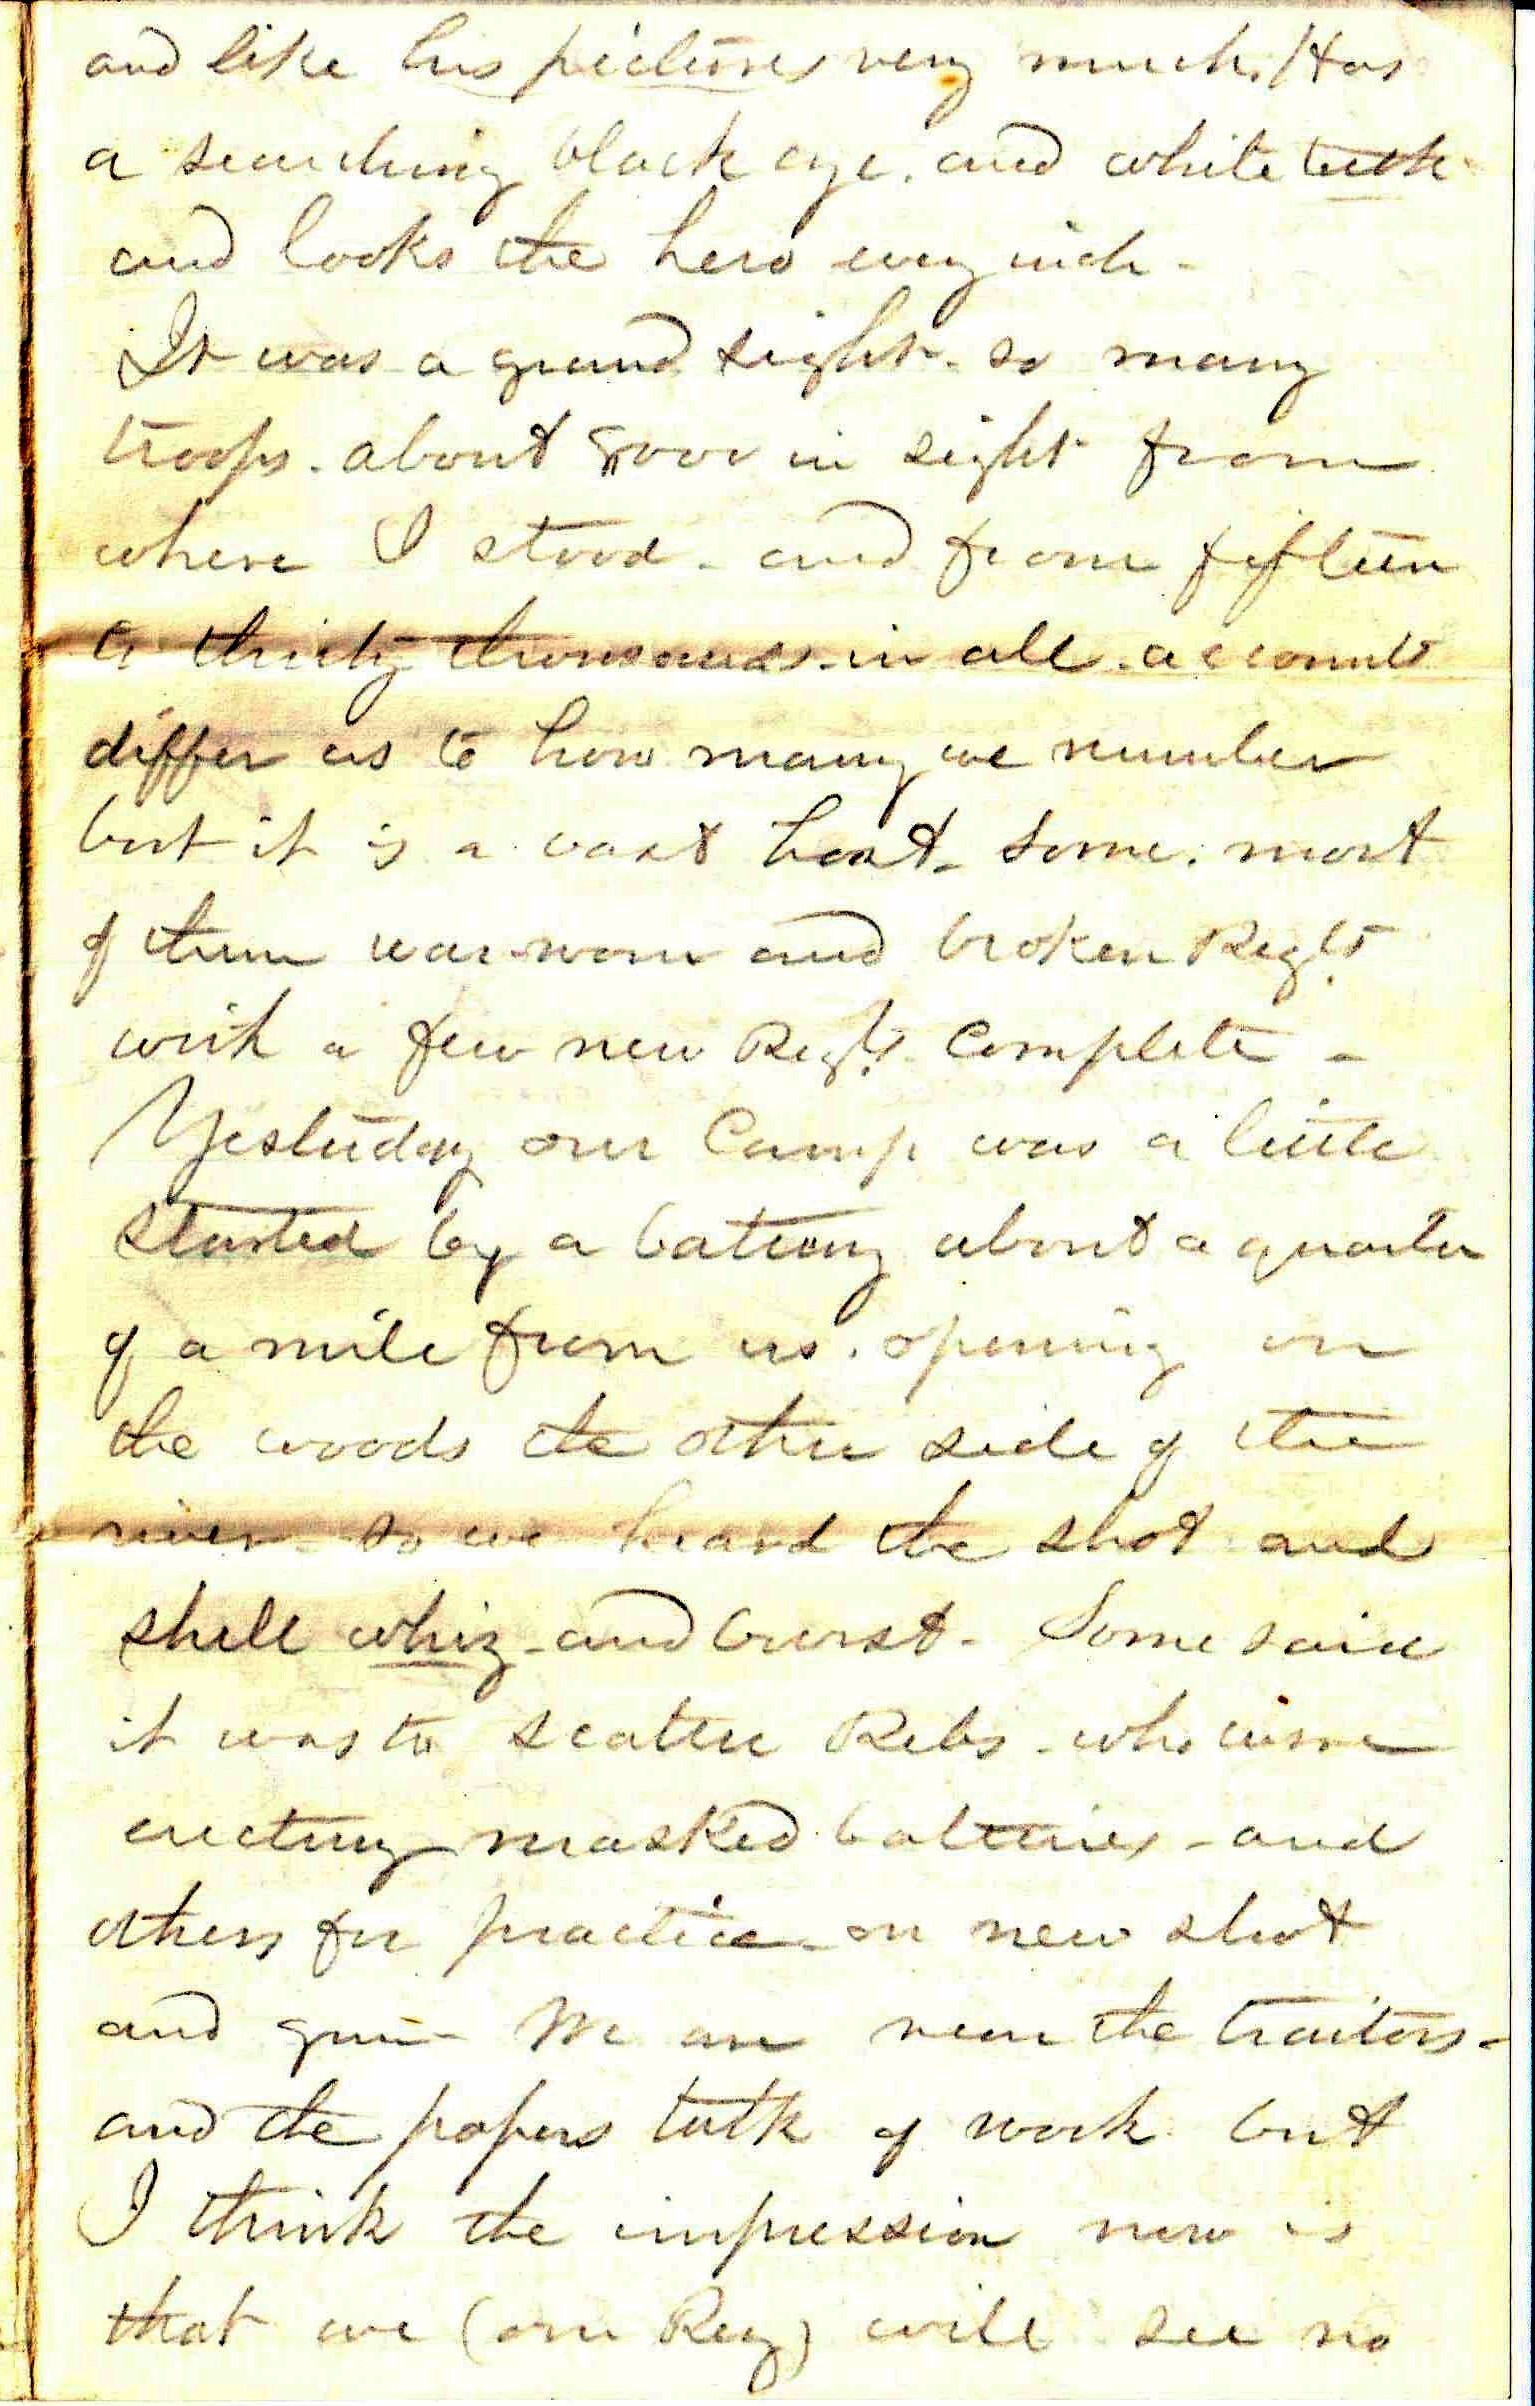 and like his pictures very much. Has
a searching black eye. and white teeth
and looks the hero every inch -
It was a grand sight - so many
troops - about in sight from
where I stood - and from fifteen
to thirty thousands in all - accounts
differ as to how many we number
but it is a vast host - Some. most
of them war-worn and broken Regts
with a few new Regts. Complete -
Yesterday our Camp was a little
started by a battery about a quarter
of a mile from us. opening on
the woods the other side of the
river - so we heard the shot and
shell whiz - and burst - Some said
it was to scatter Rebs - who were
erecting masked batteries - and
others for practice - on new shot
and gun - We are near the traitors -
and the papers talk of work but
I think the impression now is
that we (our Reg) will see no